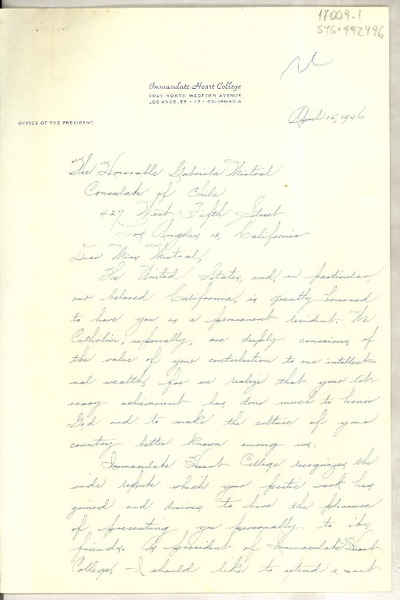 17009.1
SYS=992496
Immaculate Heart College
2021 NORTH WESTERN AVENUE
LOS ANGELES · 27 · CALIFORNIA
OFFICE OF THE PRESIDENT
April 12, 1946
The Honorable Gabriela Mistral
Consulate of Chile
427 West Fifth Street
Los Angeles 13, California
Dear Miss Mistral,
The United States, and, in particular,
our beloved California, is greatly honoured
to have you as a permanent resident. We
Catholics, especially, are deeply conscious of
the value of your contribution to our intellect-
ual wealth, for we realize that your lit-
erary achievement has done much to honor
God and to make the culture of your
country better known among us.
Immaculate Heart College recognizes the
wide repute which your poetic work has
gained and desires to have the pleasure
of presenting you personally to its
friends. As president of Immaculate Heart
College, I should like to extend a most